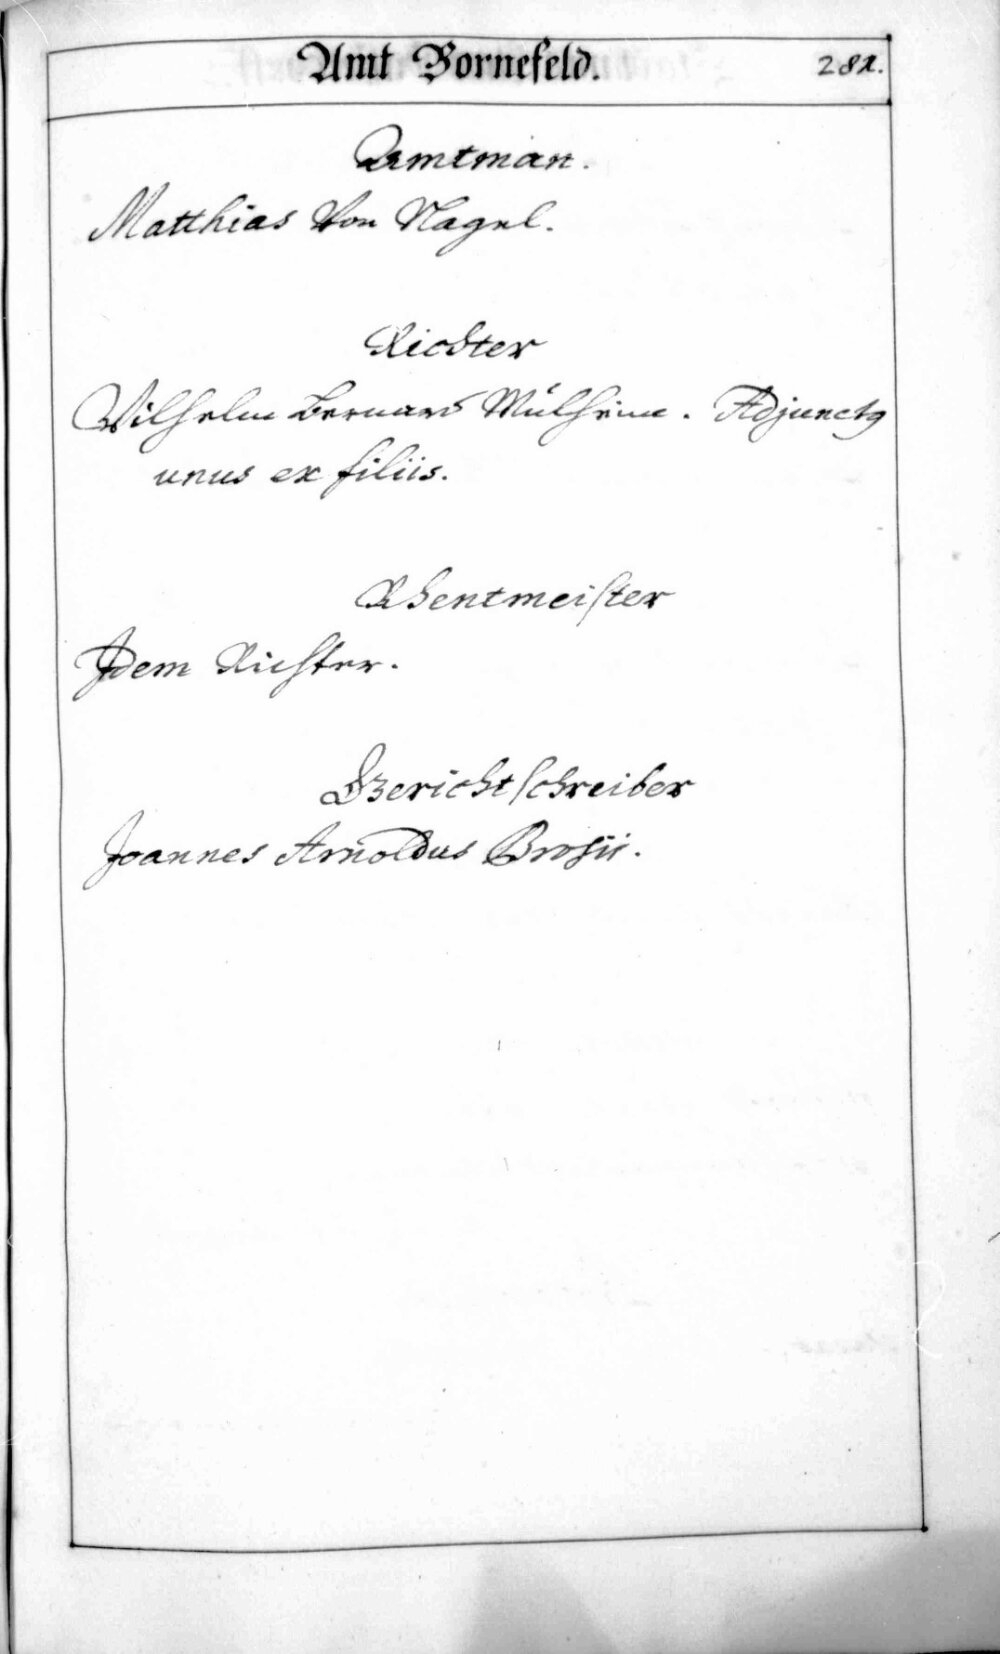 Amt Bornefeld. 281.
Amtman.
Matthias Von Nagel.
Richter
Wilhelm Bernard Mülheim. Adjunctꝰ
unus ex filiis.
Rhentmeister
Idem Richter.
Gerichtschreiber
Joannes Arnoldus Brosii.